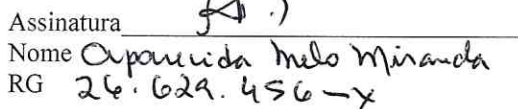 Assinatura
Nome Aparecida Melo Miranda
RG 26.629.456-x